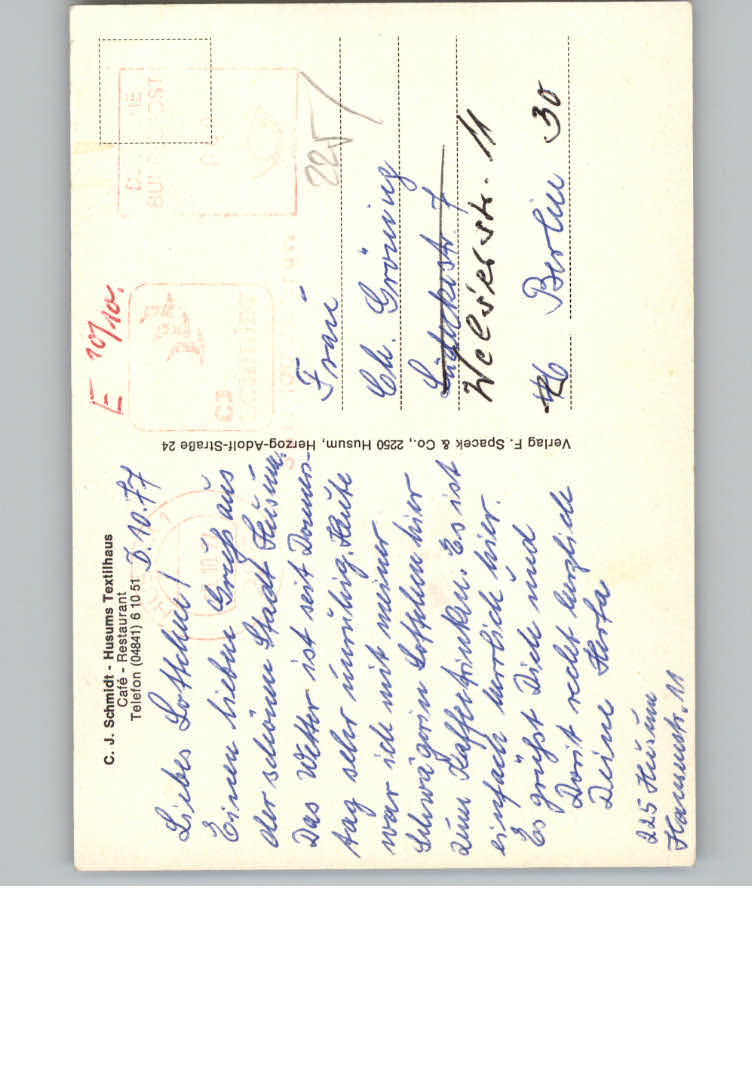 C. J. Schmidt - Husums Textilhaus
Café - Restaurant
Telefon (04841) 6 10 51
10.77
Liebes Lottchen!
Einen lieben Gruß aus
der schönen Stadt Husum.
Das Wetter ist seit Donners-
tag sehr unruhig. Heute
war ich mit meiner
Schwägerin hier
zum Kaffeetrinken. Es ist
einfach herrlich hier.
Es grüßt Dich und
Dorit recht herzlich
Deine Herta
225 Husum
11
Verlag F. Spacek & Co., 2250 Husum, Herzog-Adolf-Straße 24
E 10/10.
CJ
SCHMIDT
225
Frau
Ch. Gröning
7
Welserstr. 11
Berlin 30